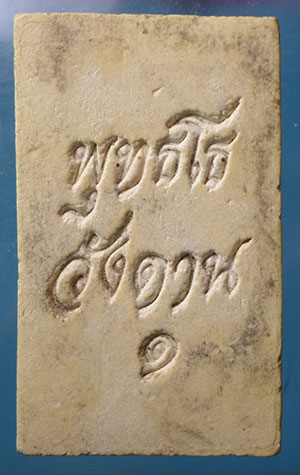 พุทธโร
วังดาน
๑